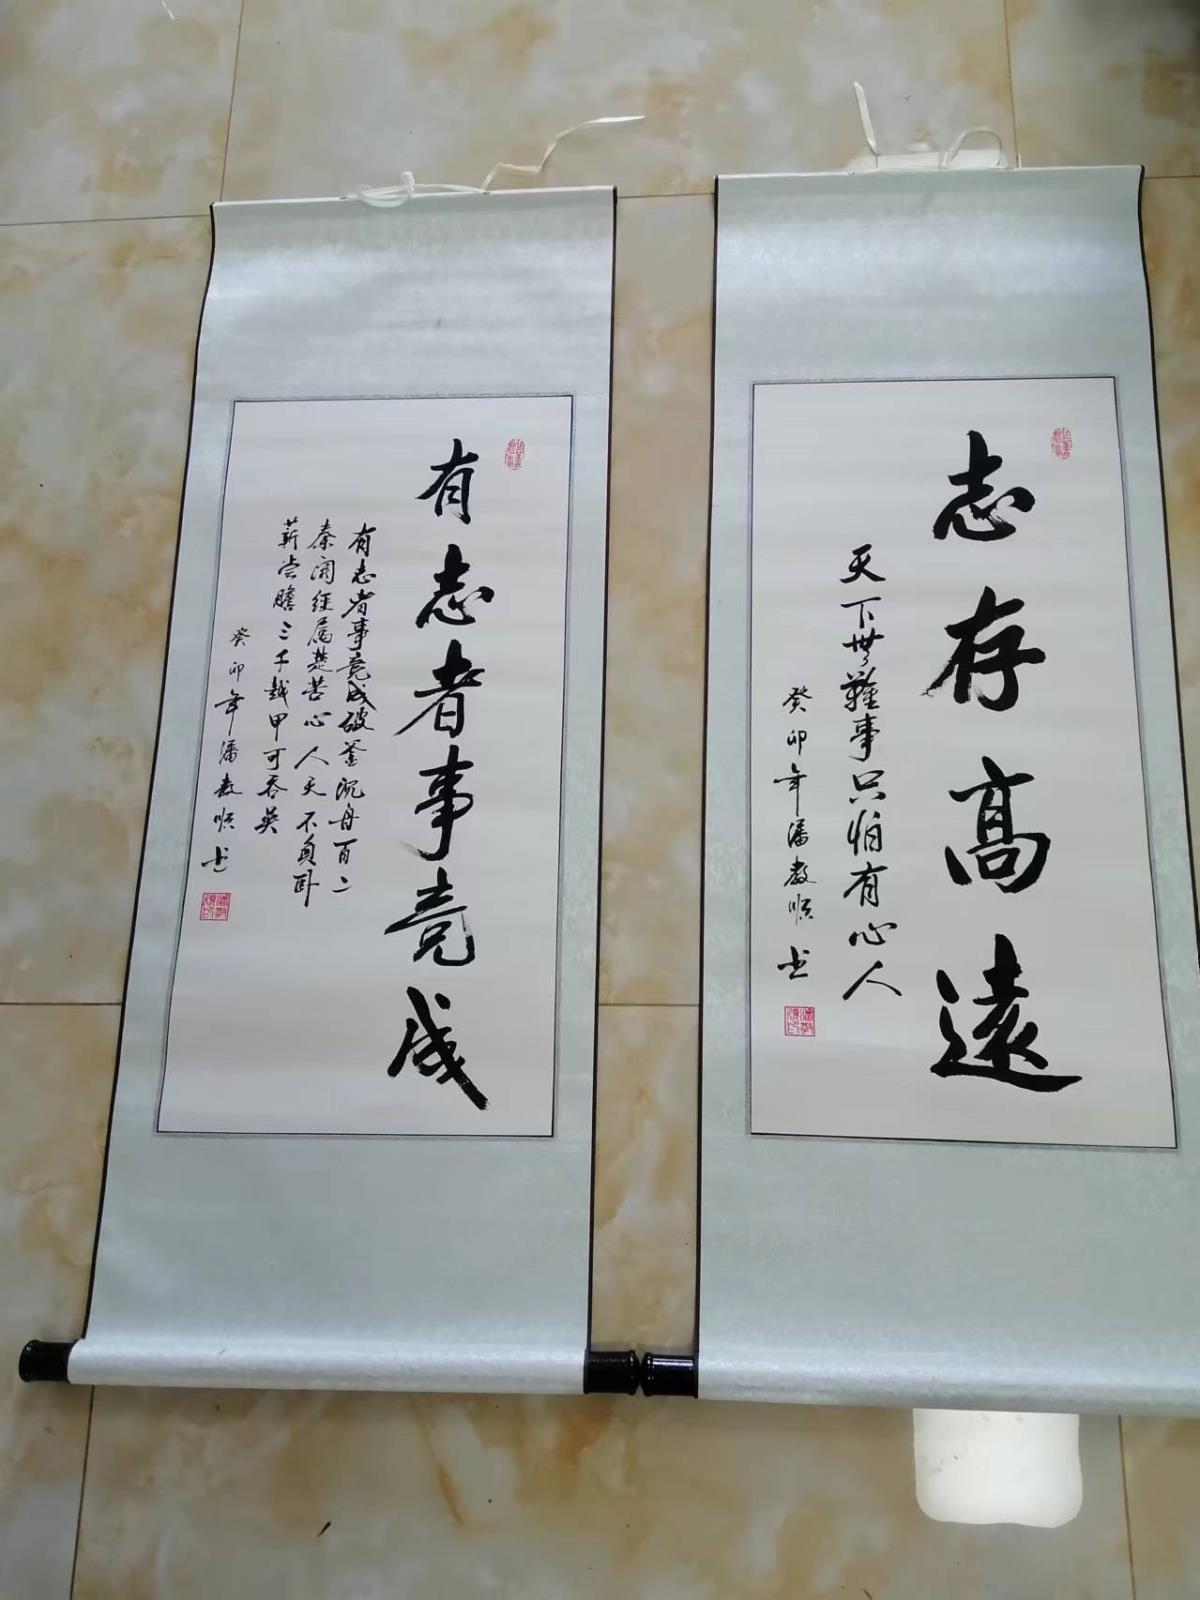 志存高遠
天下無難事只怕有心人
癸卯年潘教順书
有志者事竟成
有志者事竟成破釜沉舟百二
秦関经属楚苦心人天不負卧
薪尝膽三千越甲可吞吴
癸卯年潘教順书